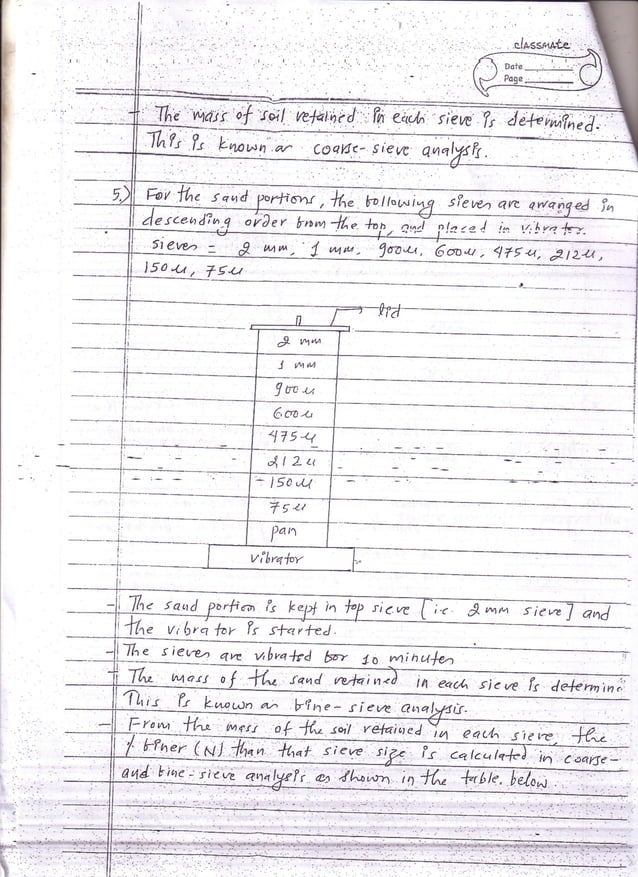 classmate
Date
Page
- The mass of soil retained in each sieve is determined.
This is known as coarse-sieve analysis.
5.) For the sand portions, the following sieves are arranged in
descending order from the top, and placed in vibrator.
sieves = 2 mm, 1 mm, 900μ, 600μ, 475μ, 212μ,
150μ, 75μ
lid
2 mm
1 mm
900μ
600μ
475μ
212μ
150μ
75μ
pan
vibrator
- The sand portion is kept in top sieve [i.e. 2 mm sieve] and
the vibrator is started.
- The sieves are vibrated for 10 minutes
- The mass of the sand retained in each sieve is determine
This is known as fine-sieve analysis.
- From the mass of the soil retained in each sieve, the
% finer (N) than that sieve size is calculated in coarse-
and fine-sieve analysis as shown in the table. below.